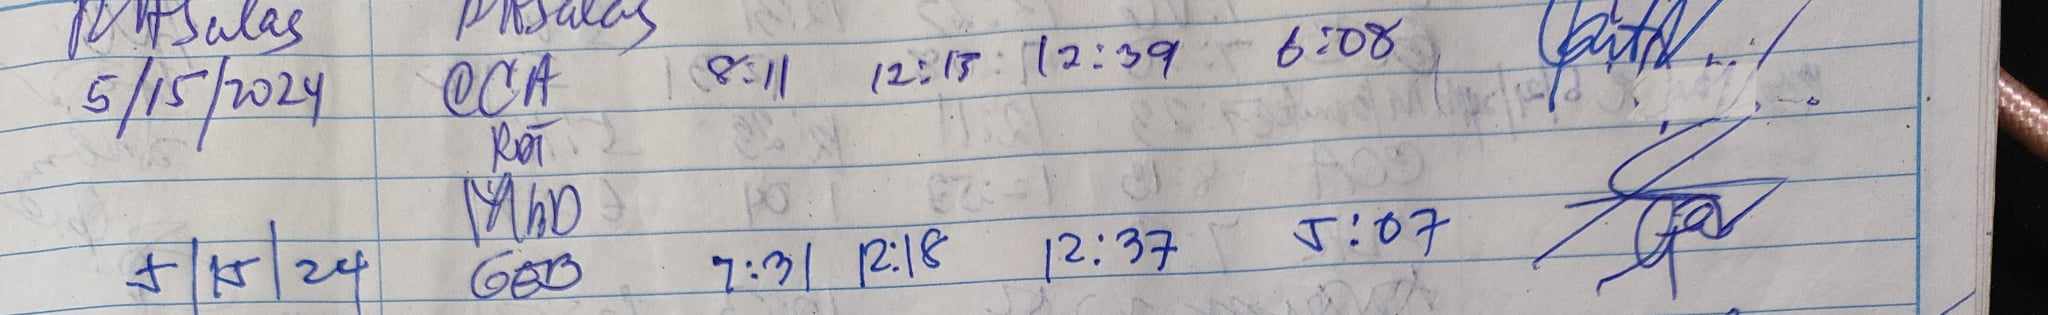 RASalas RASalas
5/15/2024 CCA 8:11 12:15 12:39 6:08
RDT
5/15/24 GEB 7:31 12:18 12:37 5:07